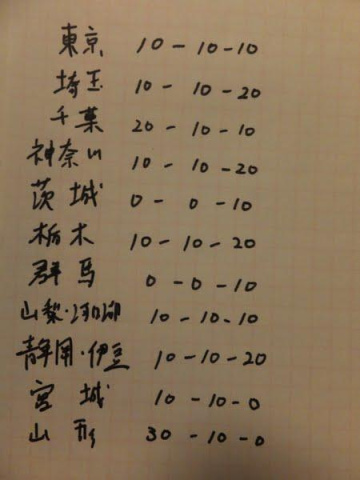 東京 10-10-10
埼玉 10-10-20
千葉 20-10-10
神奈川 10-10-20
茨城 0-0-10
栃木 10-10-20
群馬 0-0-10
山梨・河口湖 10-10-10
静岡・伊豆 10-10-20
宮城 10-10-0
山形 30-10-0